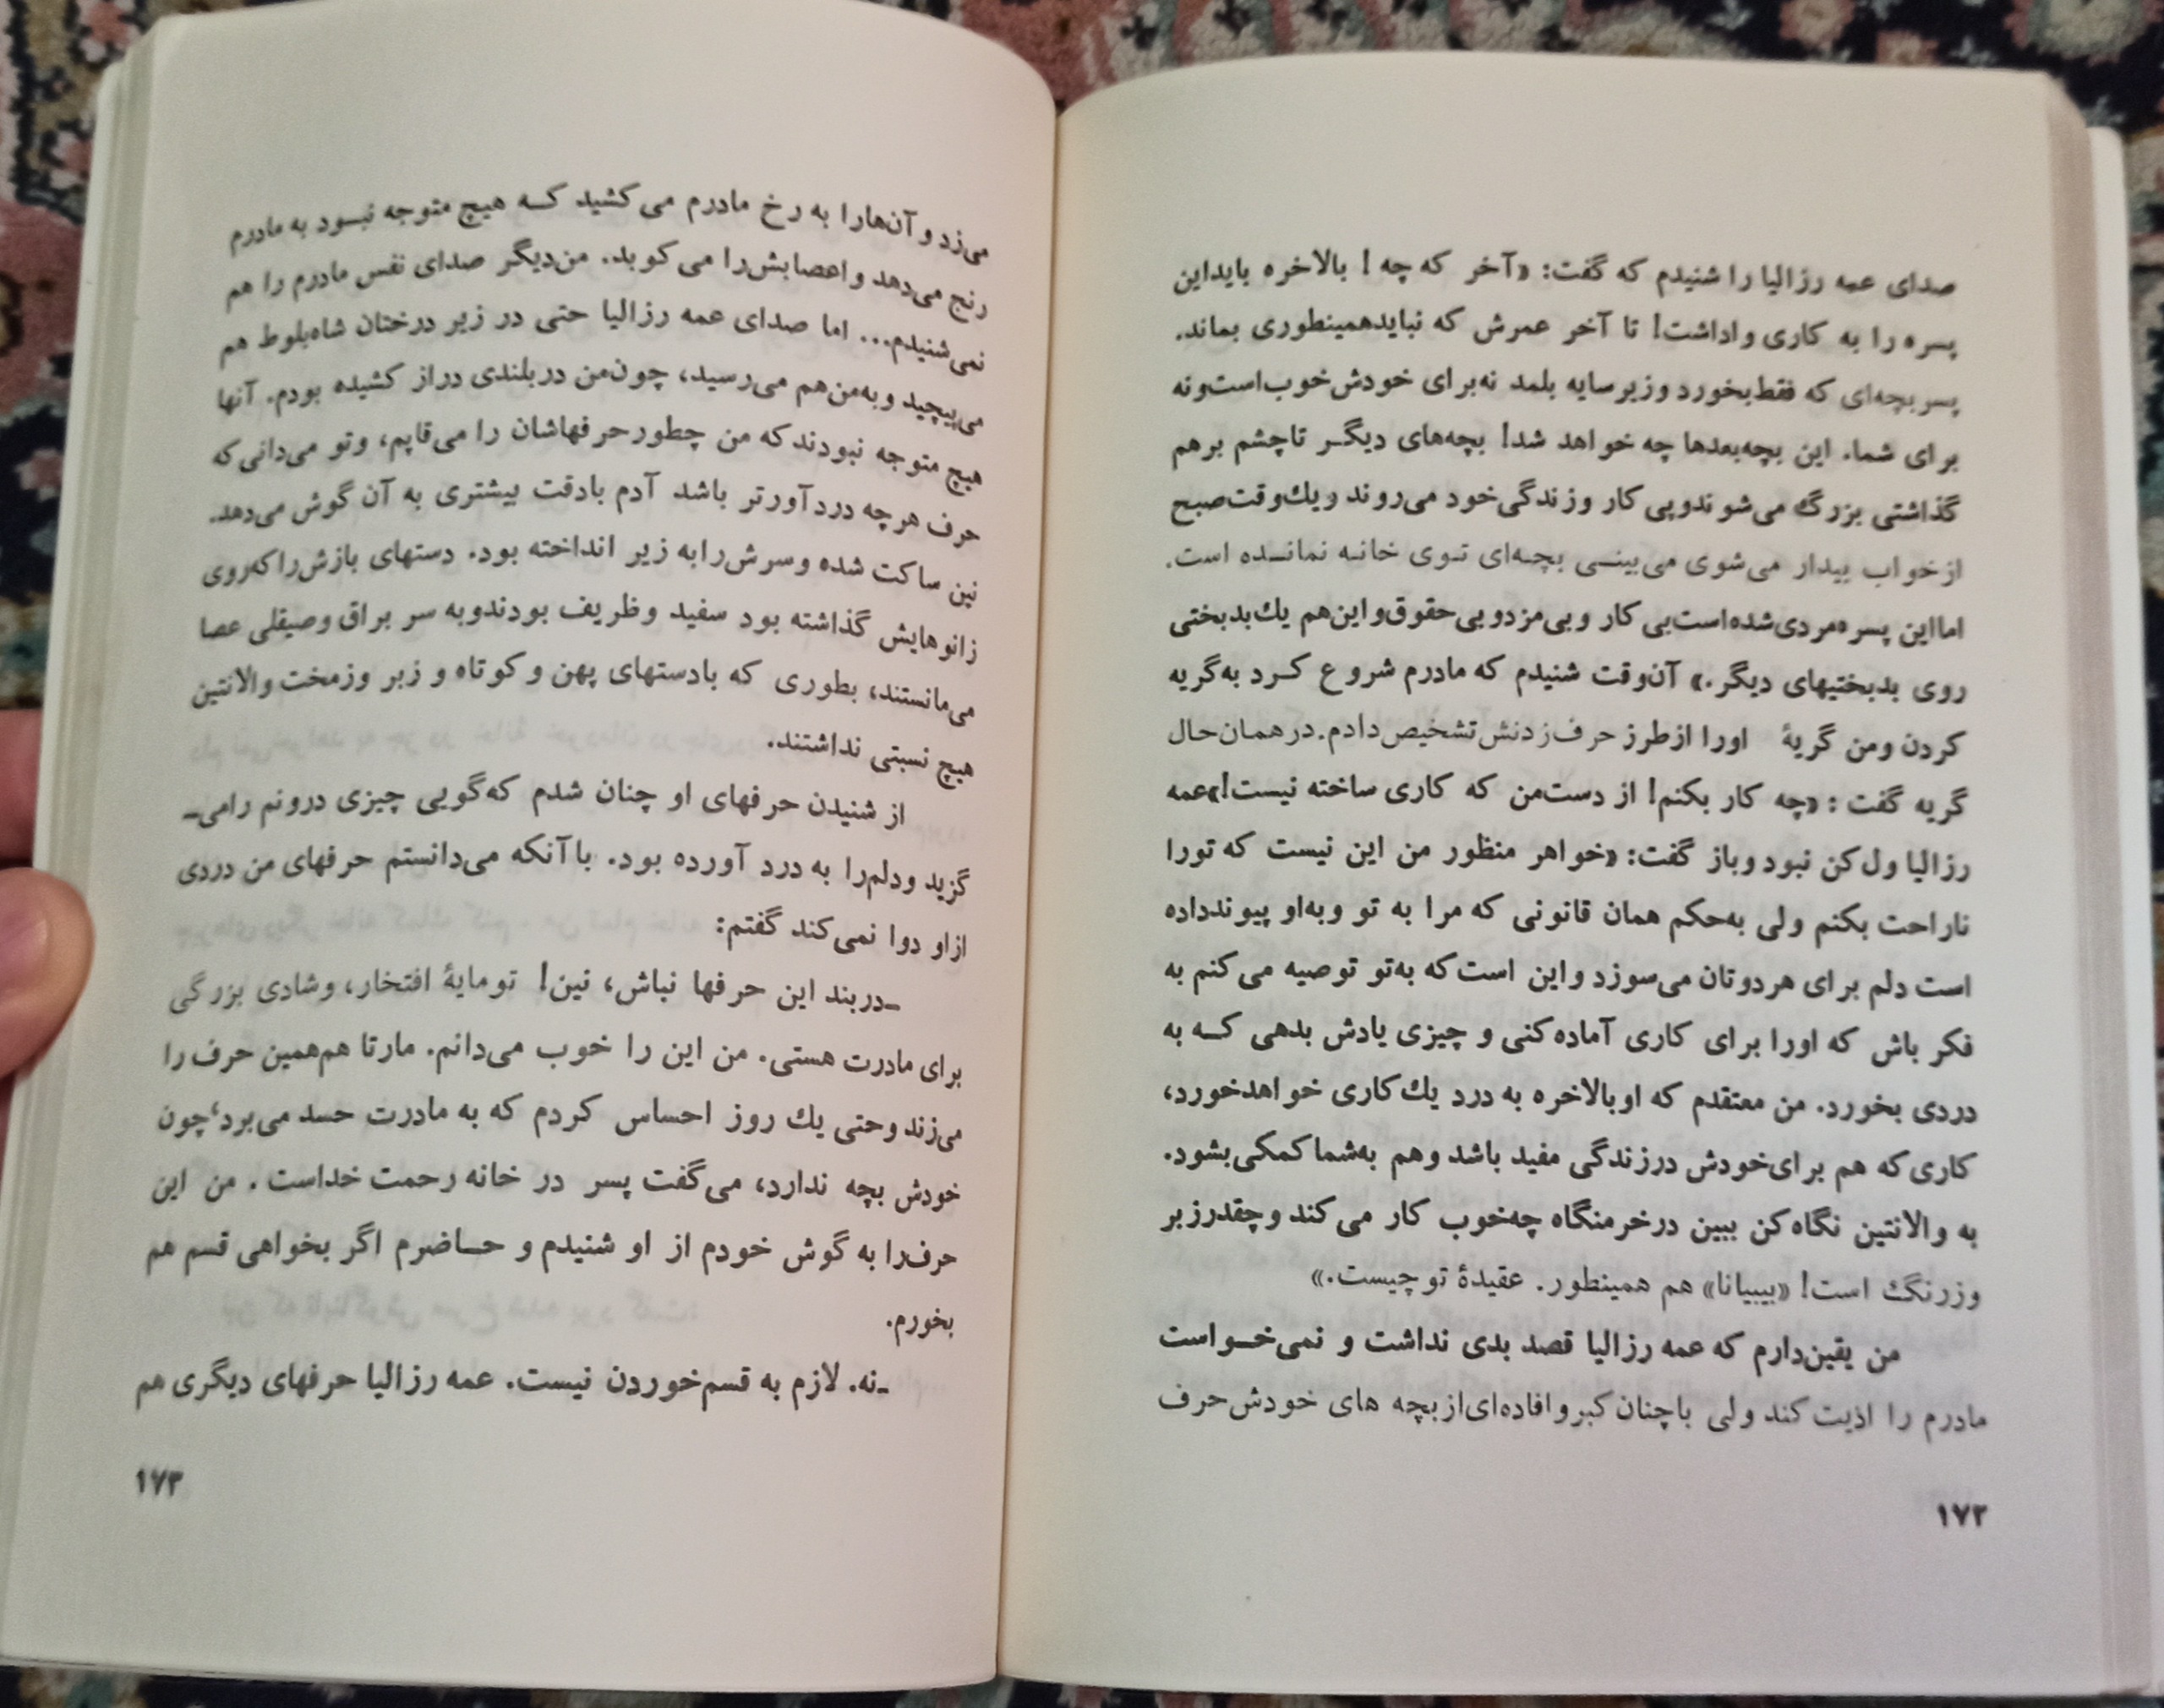 صدای عمه رزالیا را شنیدم که گفت: «آخر که چه! بالاخره باید این
پسره را به کاری واداشت! تا آخر عمرش که نباید همینطوری بماند.
پسر بچه‌ای که فقط بخورد و زیر سایه بلمد نه برای خودش خوب است و نه
برای شما. این بچه بعدها چه خواهد شد! بچه‌های دیگر تا چشم برهم
گذاشتی بزرگ می‌شوند و پی کار و زندگی خود می‌روند و یك وقت صبح
از خواب بیدار می‌شوی می‌بینی بچه‌ای توی خانه نمانده است.
اما این پسره مردی شده است بی کار و بی مزد و بی حقوق و این هم یك بدبختی
روی بدبختیهای دیگر.» آن وقت شنیدم که مادرم شروع کرد به گریه
کردن و من گریهٔ او را از طرز حرف زدنش تشخیص دادم. در همان حال
گریه گفت: «چه کار بکنم! از دست من که کاری ساخته نیست!» عمه
رزالیا ول کن نبود و باز گفت: «خواهر منظور من این نیست که تو را
ناراحت بکنم ولی به حکم همان قانونی که مرا به تو و به او پیوند داده
است دلم برای هر دوتان می‌سوزد و این است که به تو توصیه می‌کنم به
فکر باش که او را برای کاری آماده کنی و چیزی یادش بدهی که به
دردی بخورد. من معتقدم که او بالاخره به درد یك کاری خواهد خورد،
کاری که هم برای خودش در زندگی مفید باشد و هم به شما کمکی بشود.
به والانتین نگاه کن ببین در خرمنگاه چه خوب کار می‌کند و چقدر زبر
و زرنگ است! «بیبیانا» هم همینطور. عقیدهٔ تو چیست.»
من یقین دارم که عمه رزالیا قصد بدی نداشت و نمی‌خواست
مادرم را اذیت کند ولی با چنان کبر و افاده‌ای از بچه های خودش حرف
۱۷۲
می‌زد و آن‌ها را به رخ مادرم می‌کشید که هیچ متوجه نبود به مادرم
رنج می‌دهد و اعصابش را می‌کوبد. من دیگر صدای نفس مادرم را هم
نمی‌شنیدم... اما صدای عمه رزالیا حتی در زیر درختان شاه‌بلوط هم
می‌پیچید و به من هم می‌رسید، چون من در بلندی دراز کشیده بودم. آنها
هیچ متوجه نبودند که من چطور حرفهاشان را می‌قاپم، و تو می‌دانی که
حرف هرچه دردآورتر باشد آدم با دقت بیشتری به آن گوش می‌دهد.
نین ساکت شده و سرش را به زیر انداخته بود. دستهای بازش را که روی
زانوهایش گذاشته بود سفید و ظریف بودند و به سر براق و صیقلی عصا
می‌مانستند، بطوری که با دستهای پهن و کوتاه و زبر و زمخت والانتین
هیچ نسبتی نداشتند.
از شنیدن حرفهای او چنان شدم که گویی چیزی درونم را می‌-
گزید و دلم را به درد آورده بود. با آنکه می‌دانستم حرفهای من دردی
از او دوا نمی‌کند گفتم:
-در بند این حرفها نباش، نین! تو مایهٔ افتخار، و شادی بزرگی
برای مادرت هستی. من این را خوب می‌دانم. مارتا هم همین حرف را
می‌زند و حتی یك روز احساس کردم که به مادرت حسد می‌برد، چون
خودش بچه ندارد، می‌گفت پسر در خانه رحمت خداست. من این
حرف را به گوش خودم از او شنیدم و حاضرم اگر بخواهی قسم هم
بخورم.
-نه. لازم به قسم خوردن نیست. عمه رزالیا حرفهای دیگری هم
۱۷۳